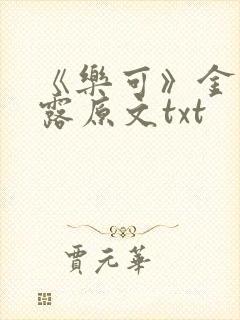 《樂可》金
露原文txt
賈元華